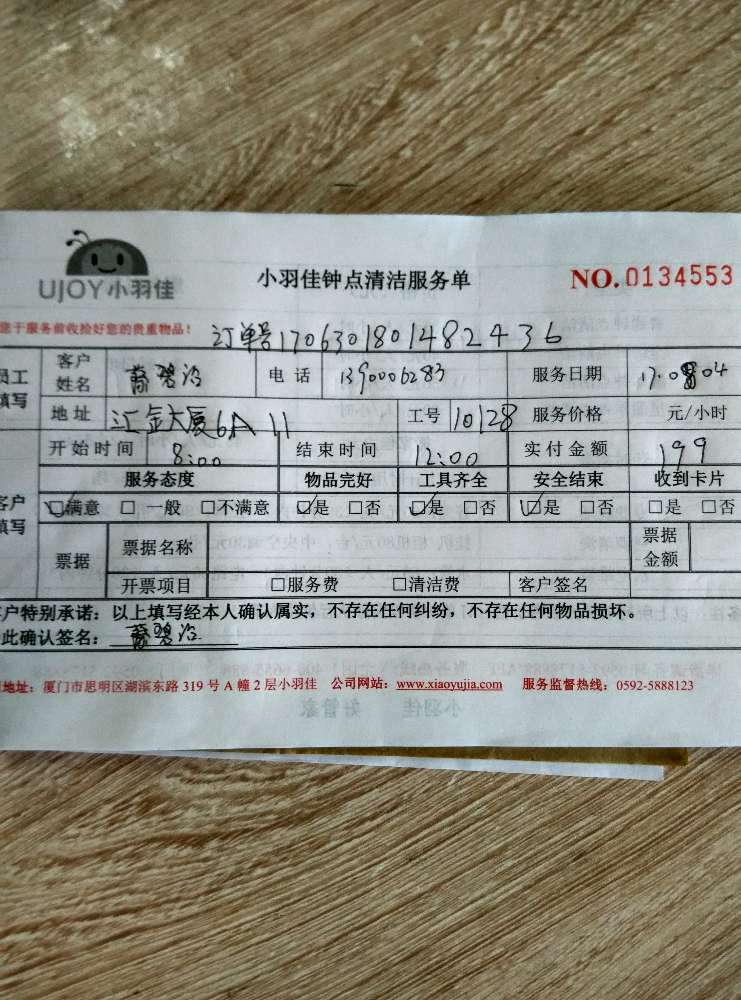 UJOY小羽佳
小羽佳钟点清洁服务单
NO.0134553
于服务前收拾好您的贵重物品!
订单号1706301801482436
员工填写 客户姓名 碧治 电话 服务日期 17.0804
地址 汇金大厦6A 11 工号 10128 服务价格 元/小时
开始时间 8:00 结束时间 12:00 实付金额 199
服务态度 物品完好 工具齐全 安全结束 收到卡片
客户填写 ☑满意 □一般 □不满意 ☑是 □否 ☑是 □否 ☑是 □否 □是 □否
票据 票据名称 票据金额
开票项目 □服务费 □清洁费 客户签名
客户特别承诺:以上填写经本人确认属实,不存在任何纠纷,不存在任何物品损坏。
此确认签名: 碧治
地址:厦门市思明区湖滨东路 319 号 A 幢 2 层小羽佳 公司网站:www.xiaoyujia.com 服务监督热线:0592-5888123